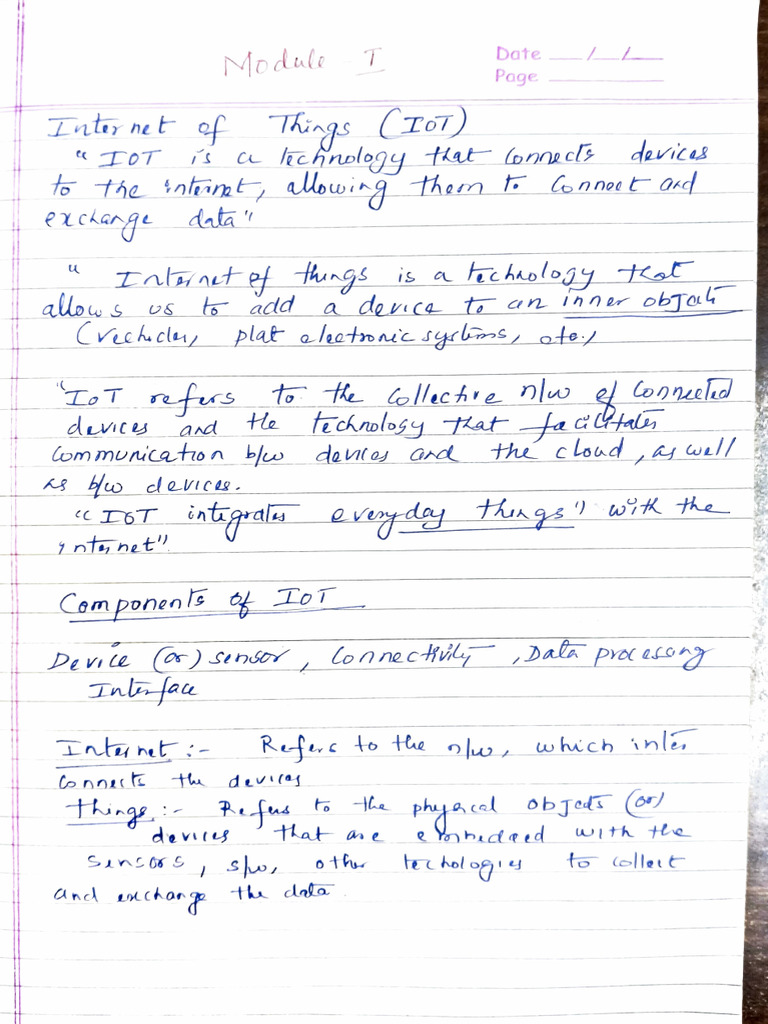 Module - I
Date __/__/__
Page ______
Internet of Things (IOT)
"IOT is a technology that connects devices
to the internet, allowing them to connect and
exchange data"
" Internet of things is a technology that
allows us to add a device to an inner objects
(vechicles, plat electronic systems, etc.,
"IoT refers to the collective n/w of connected
devices and the technology that facilitates
communication b/w devices and the cloud, as well
as b/w devices.
"IOT integrates everyday things" with the
internet".
Components of IOT
Device (or) sensor, Connectivity, Data processing
Interface
Internet :- Refers to the n/w, which inter
connects the devices
Things :- Refers to the physical objects (or)
devices that are embedded with the
sensors, s/w, other techologies to collect
and exchange the data.